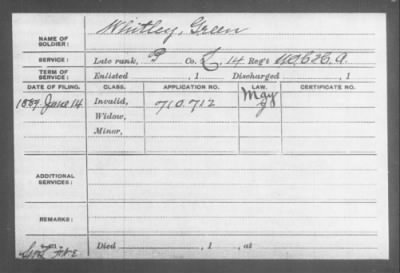 NAME OF SOLDIER: Whitley, Green
SERVICE: Late rank, P Co. L, 14 Reg't U.S.C.H.A.
TERM OF SERVICE: Enlisted , 1 Discharged , 1
DATE OF FILING. CLASS. APPLICATION NO. LAW. CERTIFICATE NO.
1889. June 14 Invalid, 710.712
Widow,
Minor,
ADDITIONAL SERVICES:
REMARKS:
Died , 1 , at